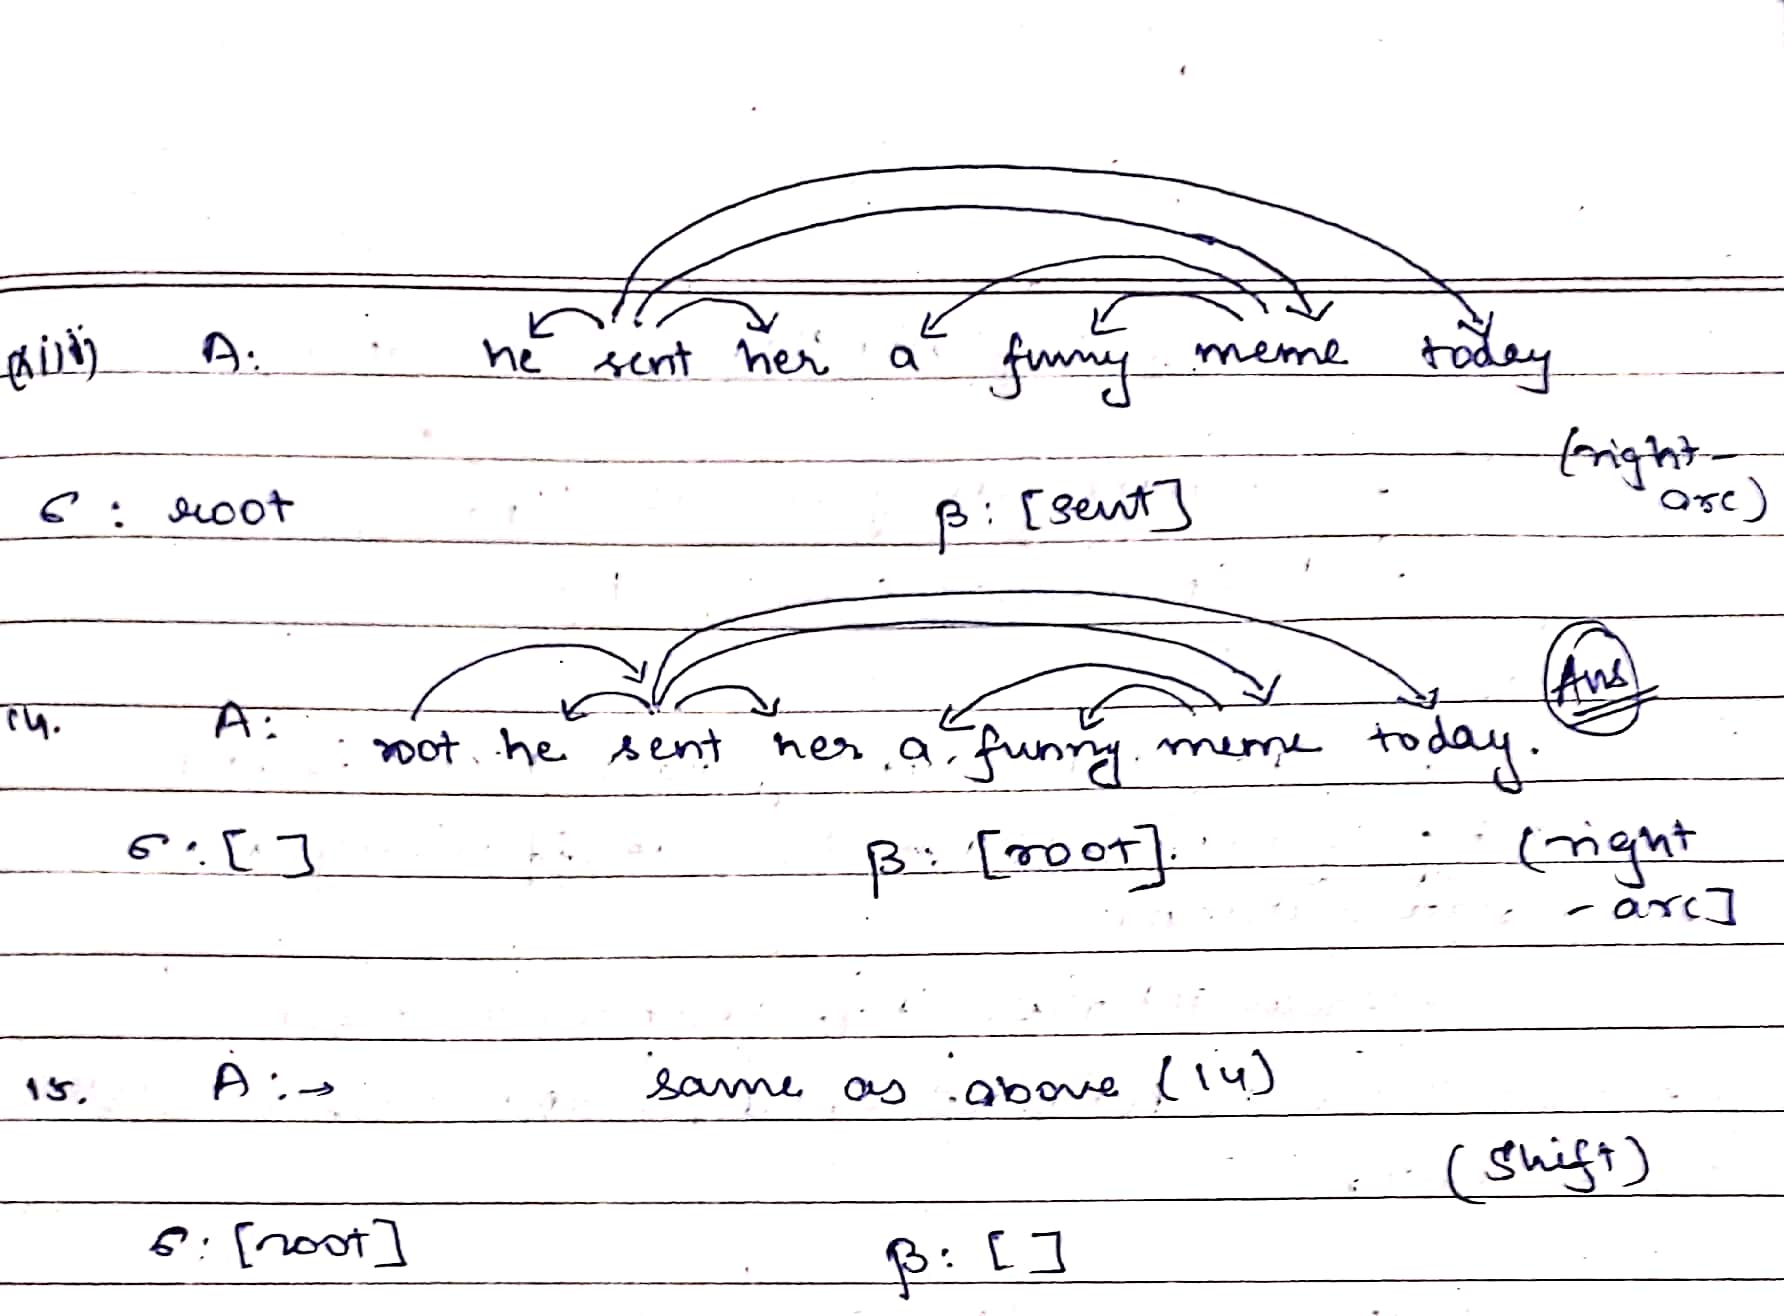 (xiii) A: he sent her a funny meme today
(right-
arc)
σ: root β: [sent]
Ans
14. A: root he sent her a funny meme today.
σ: [ ] β: [root]. (right
- arc]
15. A: → same as above (14)
(Shift)
σ: [root] β: [ ]